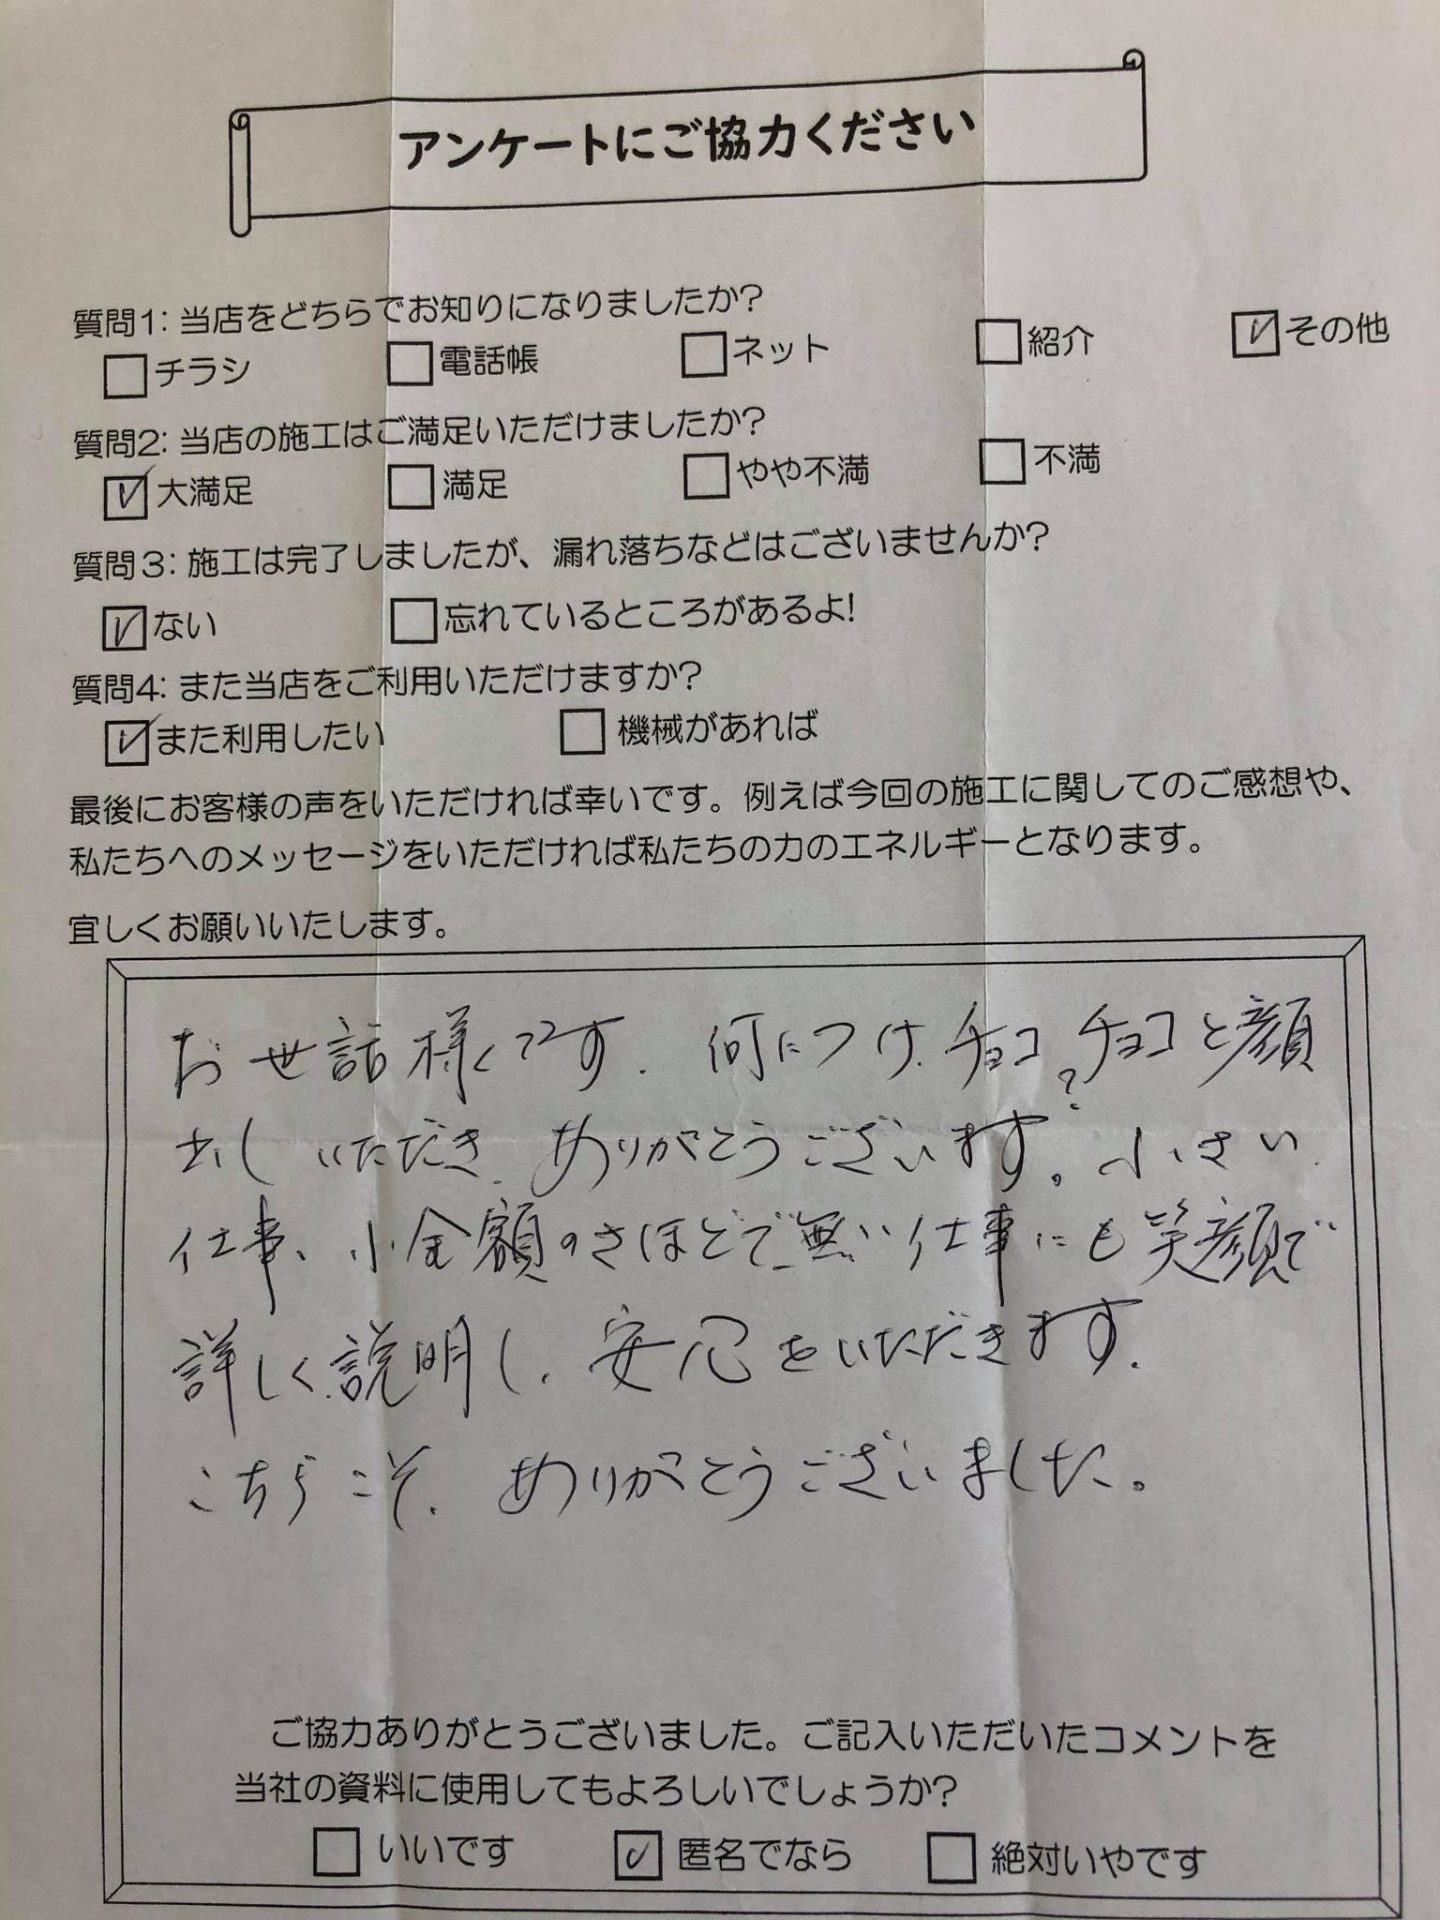 アンケートにご協力ください
質問1: 当店をどちらでお知りになりましたか?
チラシ 電話帳 ネット 紹介 その他
質問2: 当店の施工はご満足いただけましたか?
大満足 満足 やや不満 不満
質問3: 施工は完了しましたが、漏れ落ちなどはございませんか?
ない 忘れているところがあるよ!
質問4: また当店をご利用いただけますか?
また利用したい 機械があれば
最後にお客様の声をいただければ幸いです。例えば今回の施工に関してのご感想や、
私たちへのメッセージをいただければ私たちの力のエネルギーとなります。
宜しくお願いいたします。
お世話様です. 何につけ. チョコ?チョコと顔
出しいただき. ありがとうございます。小さい
仕事、小金額のさほどで無い仕事にも笑顔で
詳しく説明し. 安心をいただきます.
こちらこそ. ありがとうございました。
ご協力ありがとうございました。ご記入いただいたコメントを
当社の資料に使用してもよろしいでしょうか?
いいです 匿名でなら 絶対いやです